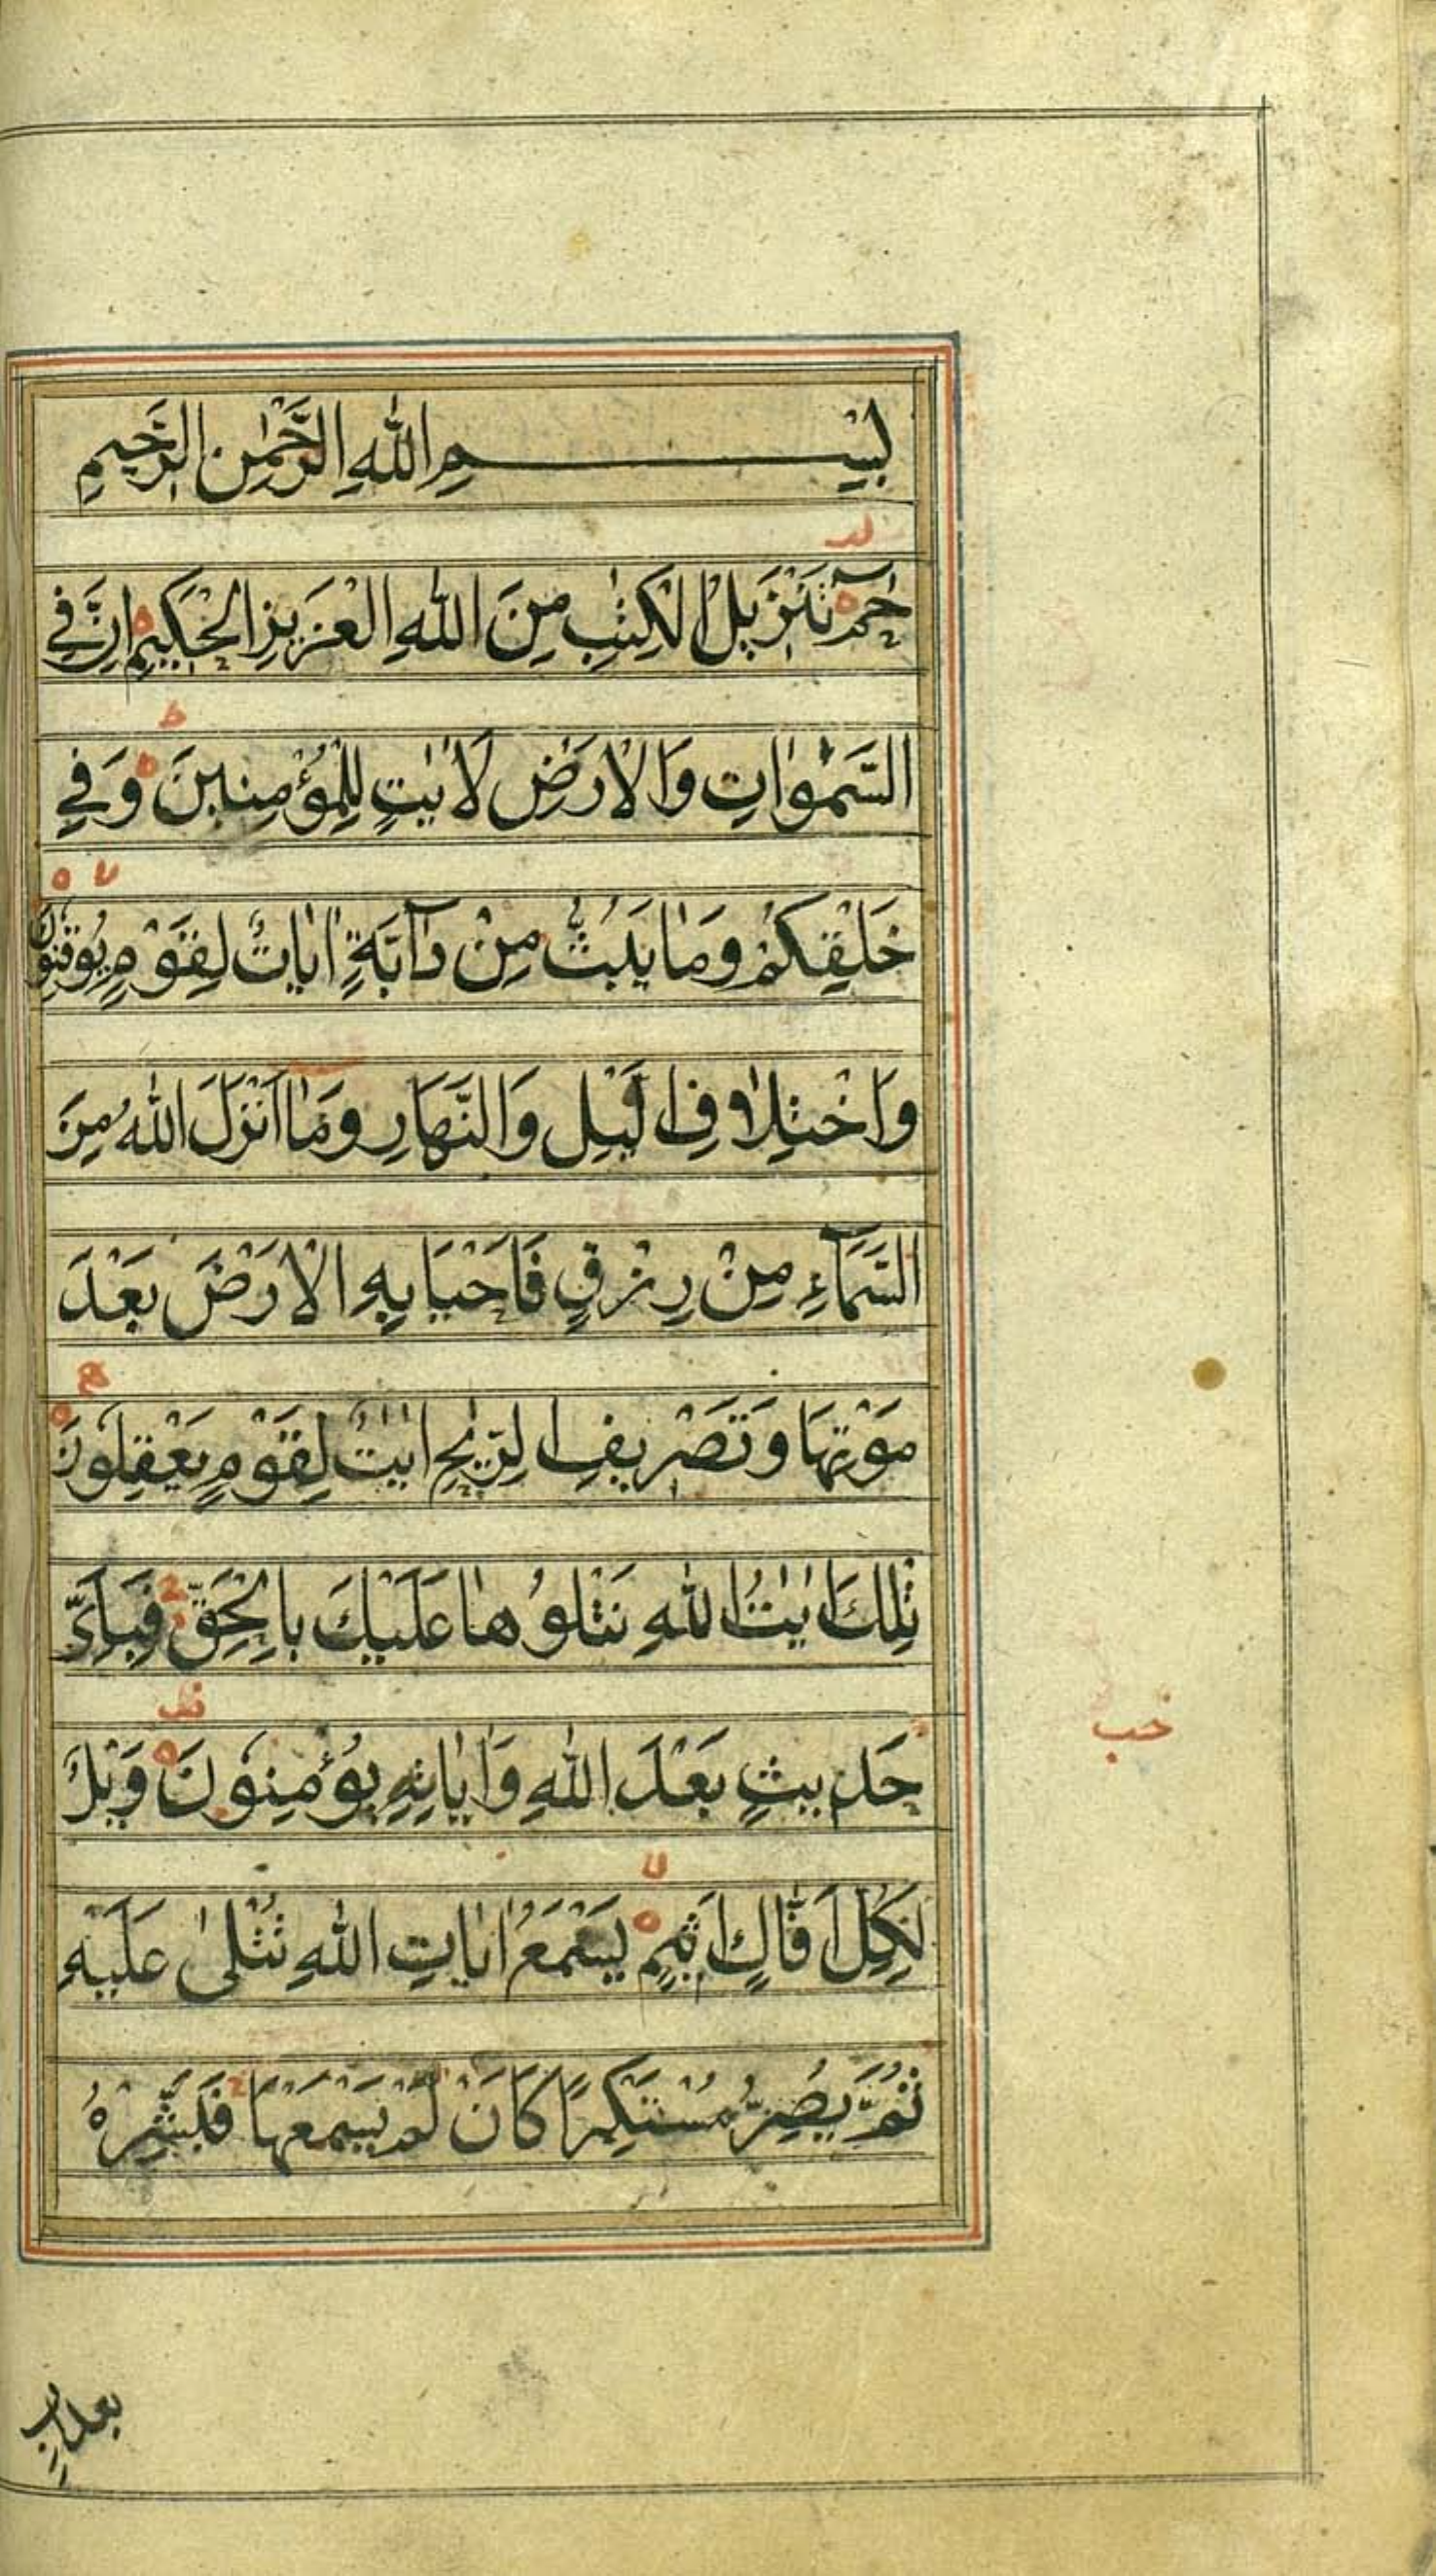 بِسْمِ اللهِ الرَّحْمٰنِ الرَّحِيمِ
حٰمٓ تَنْزِيلُ الْكِتٰبِ مِنَ اللهِ الْعَزِيزِ الْحَكِيمِ اِنَّ فِي
السَّمٰوَاتِ وَالْاَرْضِ لَاٰيٰتٍ لِلْمُؤْمِنِينَ وَفِي
خَلْقِكُمْ وَمَا يَبُثُّ مِنْ دَآبَّةٍ اٰيَاتٌ لِقَوْمٍ يُوقِنُونَ
وَاخْتِلَافِ الَّيْلِ وَالنَّهَارِ وَمَا اَنْزَلَ اللهُ مِنَ
السَّمَآءِ مِنْ رِزْقٍ فَاَحْيَا بِهِ الْاَرْضَ بَعْدَ
مَوْتِهَا وَتَصْرِيفِ الرِّيٰحِ اٰيٰتٌ لِقَوْمٍ يَعْقِلُونَ
تِلْكَ اٰيٰتُ اللهِ نَتْلُوهَا عَلَيْكَ بِالْحَقِّ فَبِاَيِّ
حَدِيثٍ بَعْدَ اللهِ وَاٰيَاتِهِ يُؤْمِنُونَ وَيْلٌ
لِكُلِّ اَفَّاكٍ اَثِيمٍ يَسْمَعُ اٰيَاتِ اللهِ تُتْلٰى عَلَيْهِ
ثُمَّ يُصِرُّ مُسْتَكْبِرًا كَاَنْ لَمْ يَسْمَعْهَا فَبَشِّرْهُ
خب